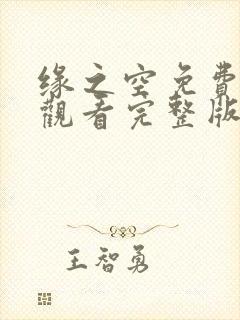 缘之空免費
觀看完整版
王智勇